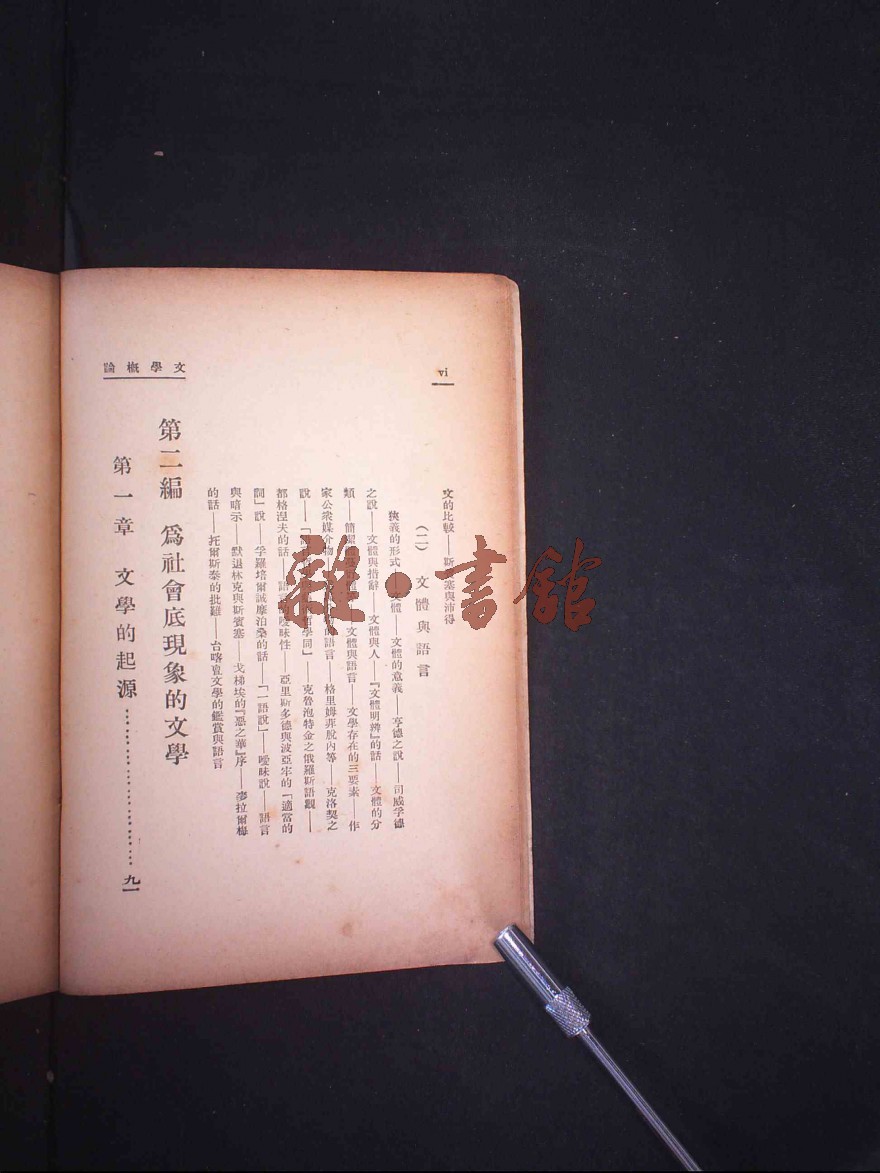 vi
文學概論
文的比較——斯賓塞與沛得
（二）　文體與語言
狹義的形式——文體——文體的意義——亨德之說——司威孚德
之說——文體與措辭——文體與人——『文體明辨』的話——文體的分
類——簡潔體 文體與語言——文學存在的三要素——作
家公衆媒介物 的語言——格里姆非脫內等——克洛契之
說——「語 學同」——克魯泡特金之俄羅斯語觀——
都格涅夫的話——語言的曖昧性——亞里斯多德與波亞牢的「適當的
詞」說——孚羅培爾誡摩泊桑的話——「一語說」——曖昧說——語言
與暗示——默退林克與斯賓塞——戈梯埃的『惡之華』序——麥拉爾梅
的話——托爾斯泰的批難——台喀耷文學的鑑賞與語言
第二編　爲社會底現象的文學
第一章　文學的起源……………………九一
雜·書館